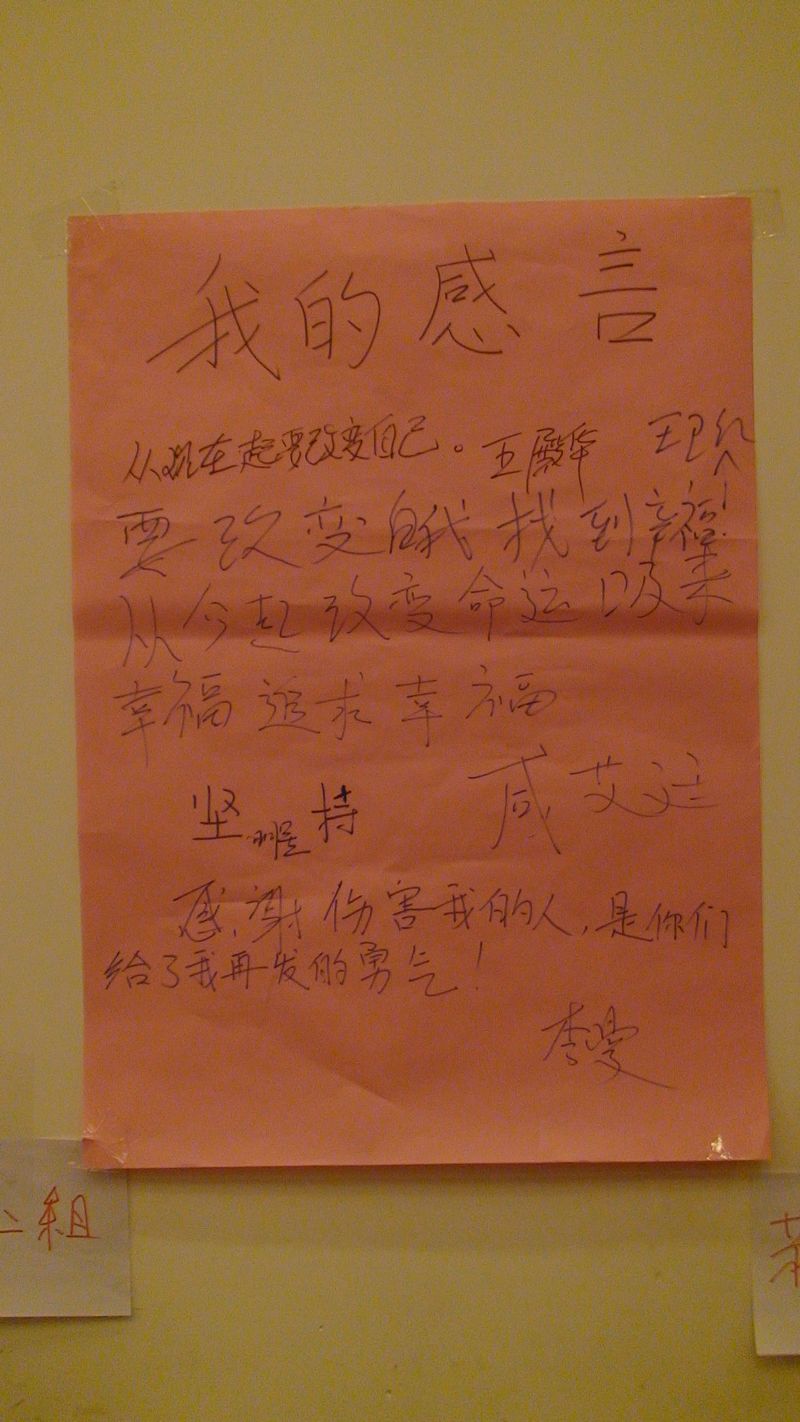 我的感言
从现在起要改变自己。王殿华 王卫红
要改变自我找到幸福
从今起改变命运吸来
幸福追求幸福
坚 持
咸艾廷
感谢伤害我的人,是你们
给了我再发的勇气!
李雯
二组